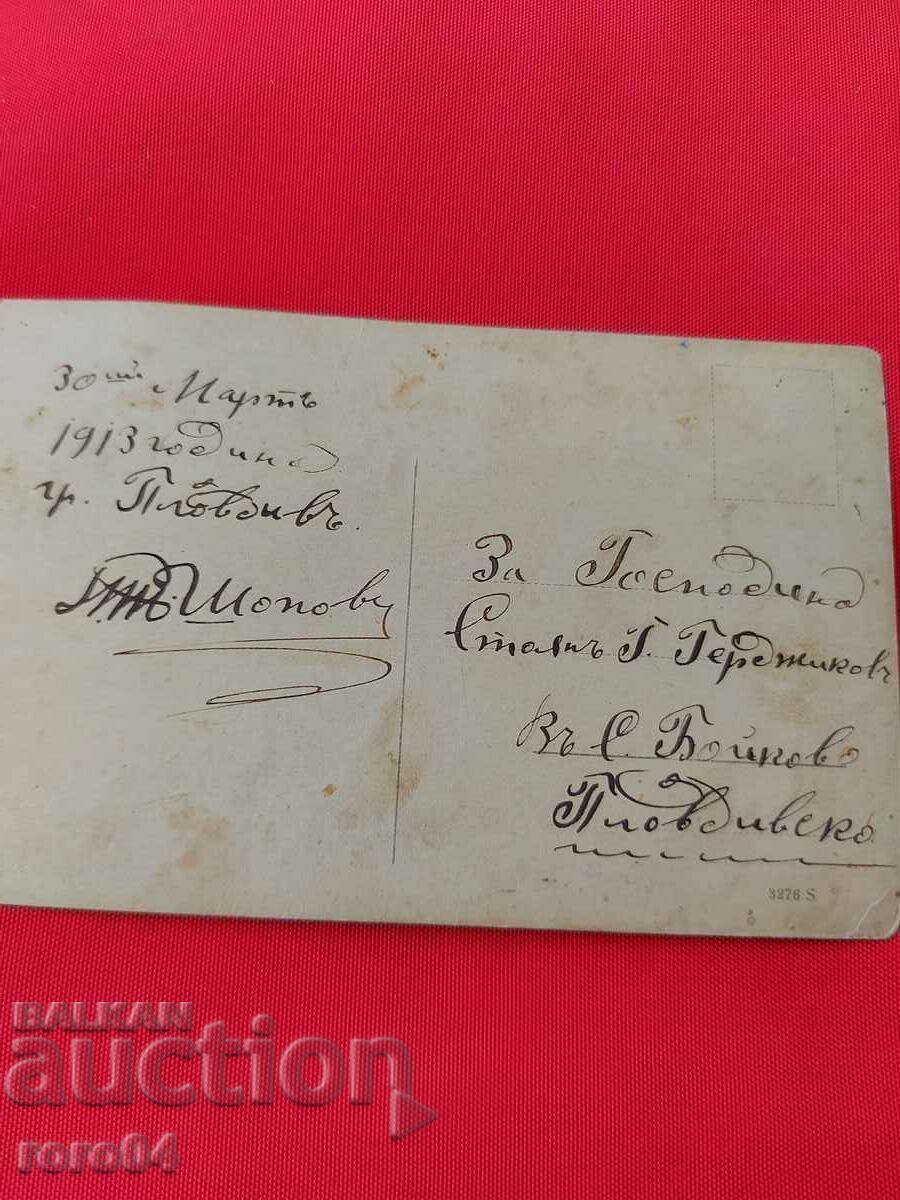 30ий Мартъ
1913 година
гр. Пловдивъ.
Шоповъ
За Господина
Стоянъ Г. Герджиковъ
Въ С. Бойково
Пловдивско
3276 S
BALKAN
auction
roro04